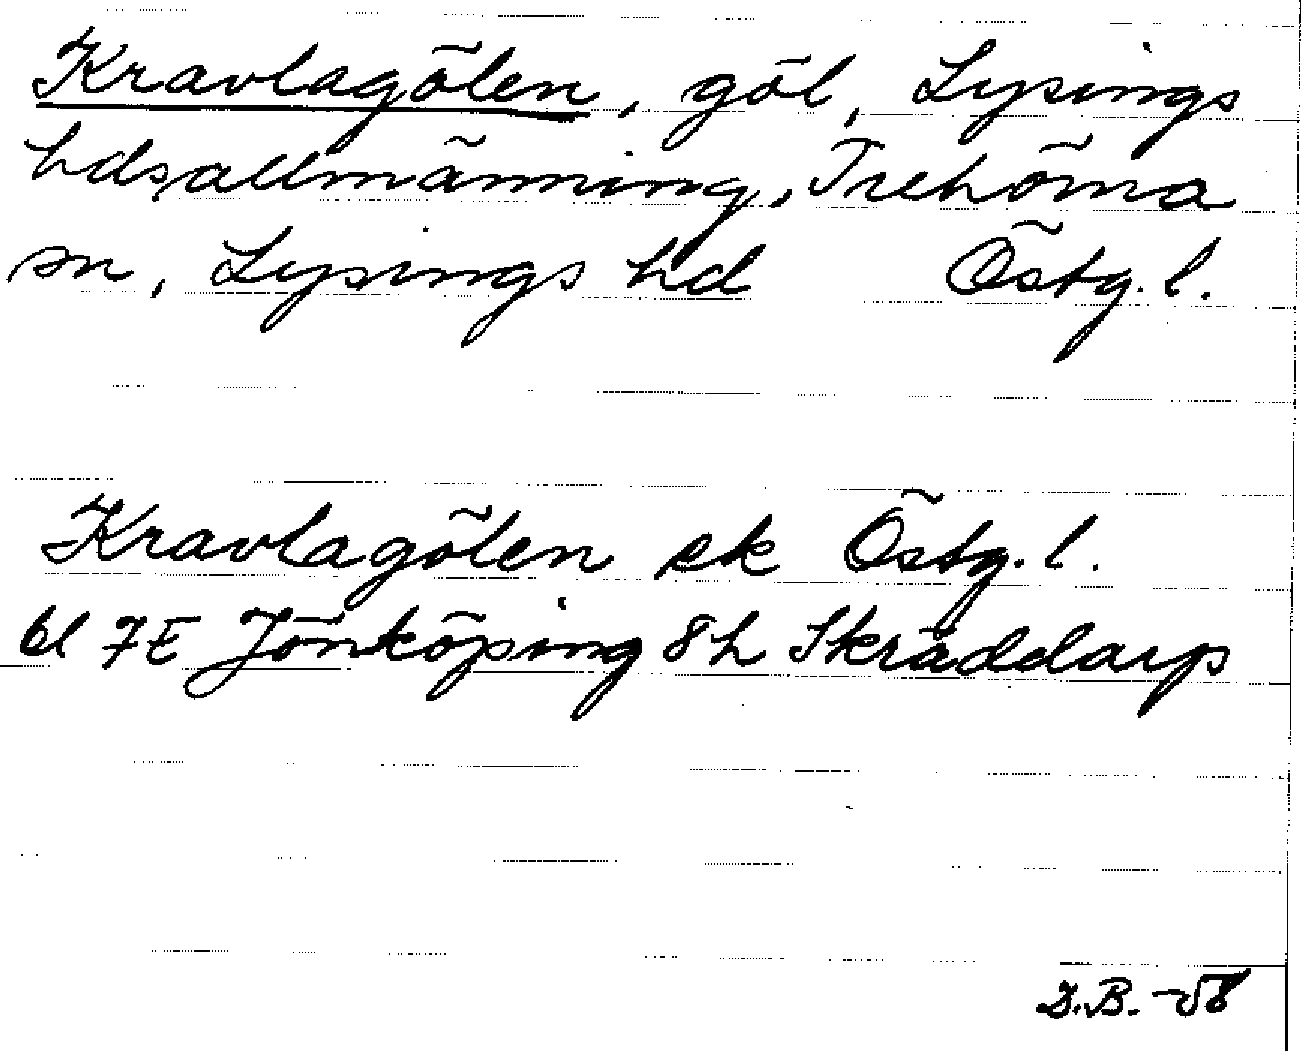 Kravlagölen, göl, Lysings
hdsallmänning, Trehörna
sn, Lysings hd Östg. l.
Kravlagölen ek Östg. l.
bl 7E Jönköping 8h Skräddarp
D.B. -58